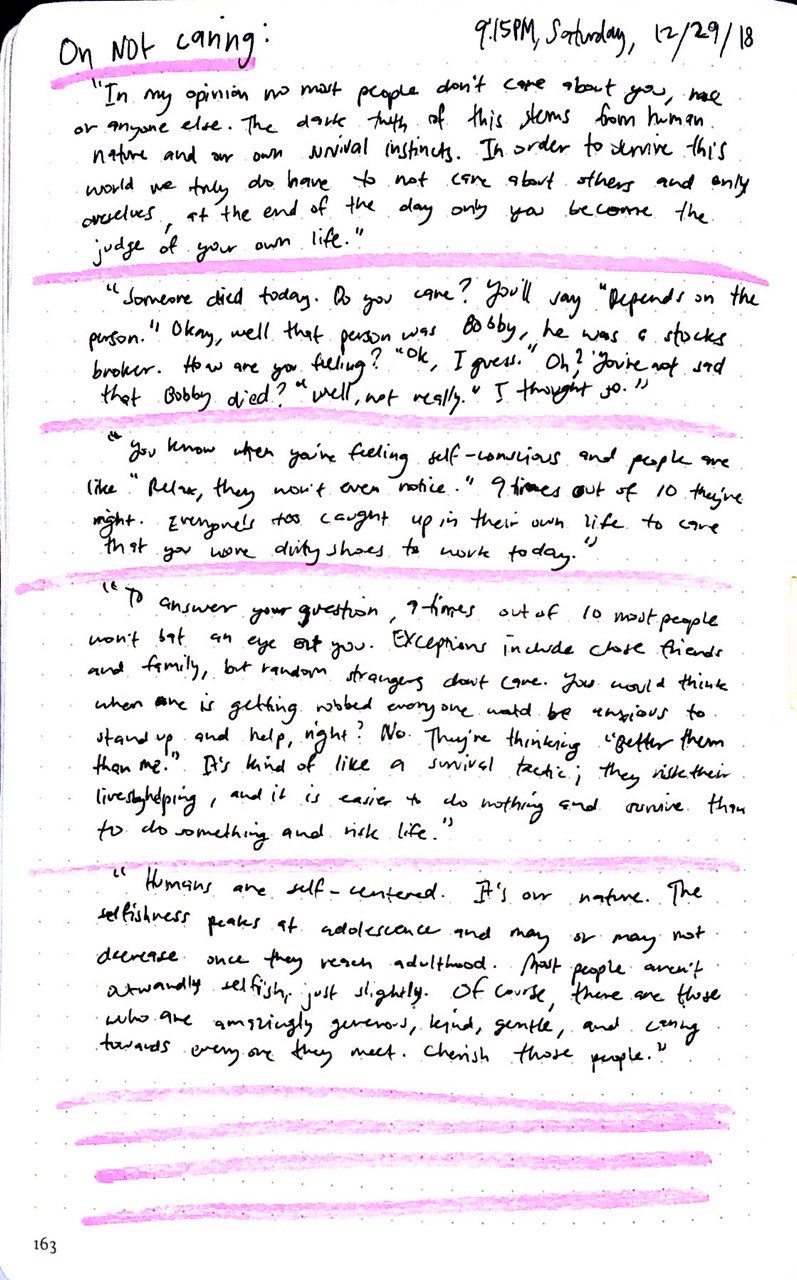 On Not Caring:
9:15PM, Saturday, 12/29/18
"In my opinion no most people don't care about you, me
or anyone else. The dark truth of this stems from human
nature and our own survival instincts. In order to survive this
world we truly do have to not care about others and only
ourselves, at the end of the day only you become the
judge of your own life."
"Someone died today. Do you care? You'll say "Depends on the
person." Okay, well that person was Bobby, he was a stocks
broker. How are you feeling? "Ok, I guess." Oh? You're not sad
that Bobby died? "Well, not really." I thought so."
"You know when you're feeling self-conscious and people are
like "Relax, they won't even notice." 9 times out of 10 they're
right. Everyone's too caught up in their own life to care
that you wore dirty shoes to work today."
"To answer your question, 9 times out of 10 most people
won't bat an eye at you. Exceptions include close friends
and family, but random strangers don't care. You would think
when one is getting robbed everyone would be anxious to
stand up and help, right? No. They're thinking "Better them
than me." It's kind of like a survival tactic; they risk their
lives by helping, and it is easier to do nothing and survive than
to do something and risk life."
"Humans are self-centered. It's our nature. The
selfishness peaks at adolescence and may or may not
decrease once they reach adulthood. Most people aren't
outwardly selfish, just slightly. Of course, there are those
who are amazingly generous, kind, gentle, and caring
towards everyone they meet. Cherish those people."
163